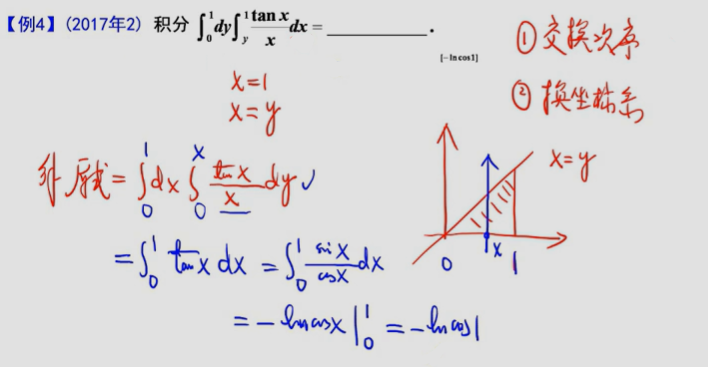 【例4】(2017年2) 积分 ∫₀¹dy∫ᵧ¹ tan x/x dx = ________.
[-ln cos1]
① 交换次序
② 换坐标系
x=1
x=y
x=y
解 原式 = ∫₀¹dx∫₀ˣ tanx/x dy ✓
= ∫₀¹ tanx dx = ∫₀¹ sinx/cosx dx
0 x 1
= -ln cosx |₀¹ = -ln cos1